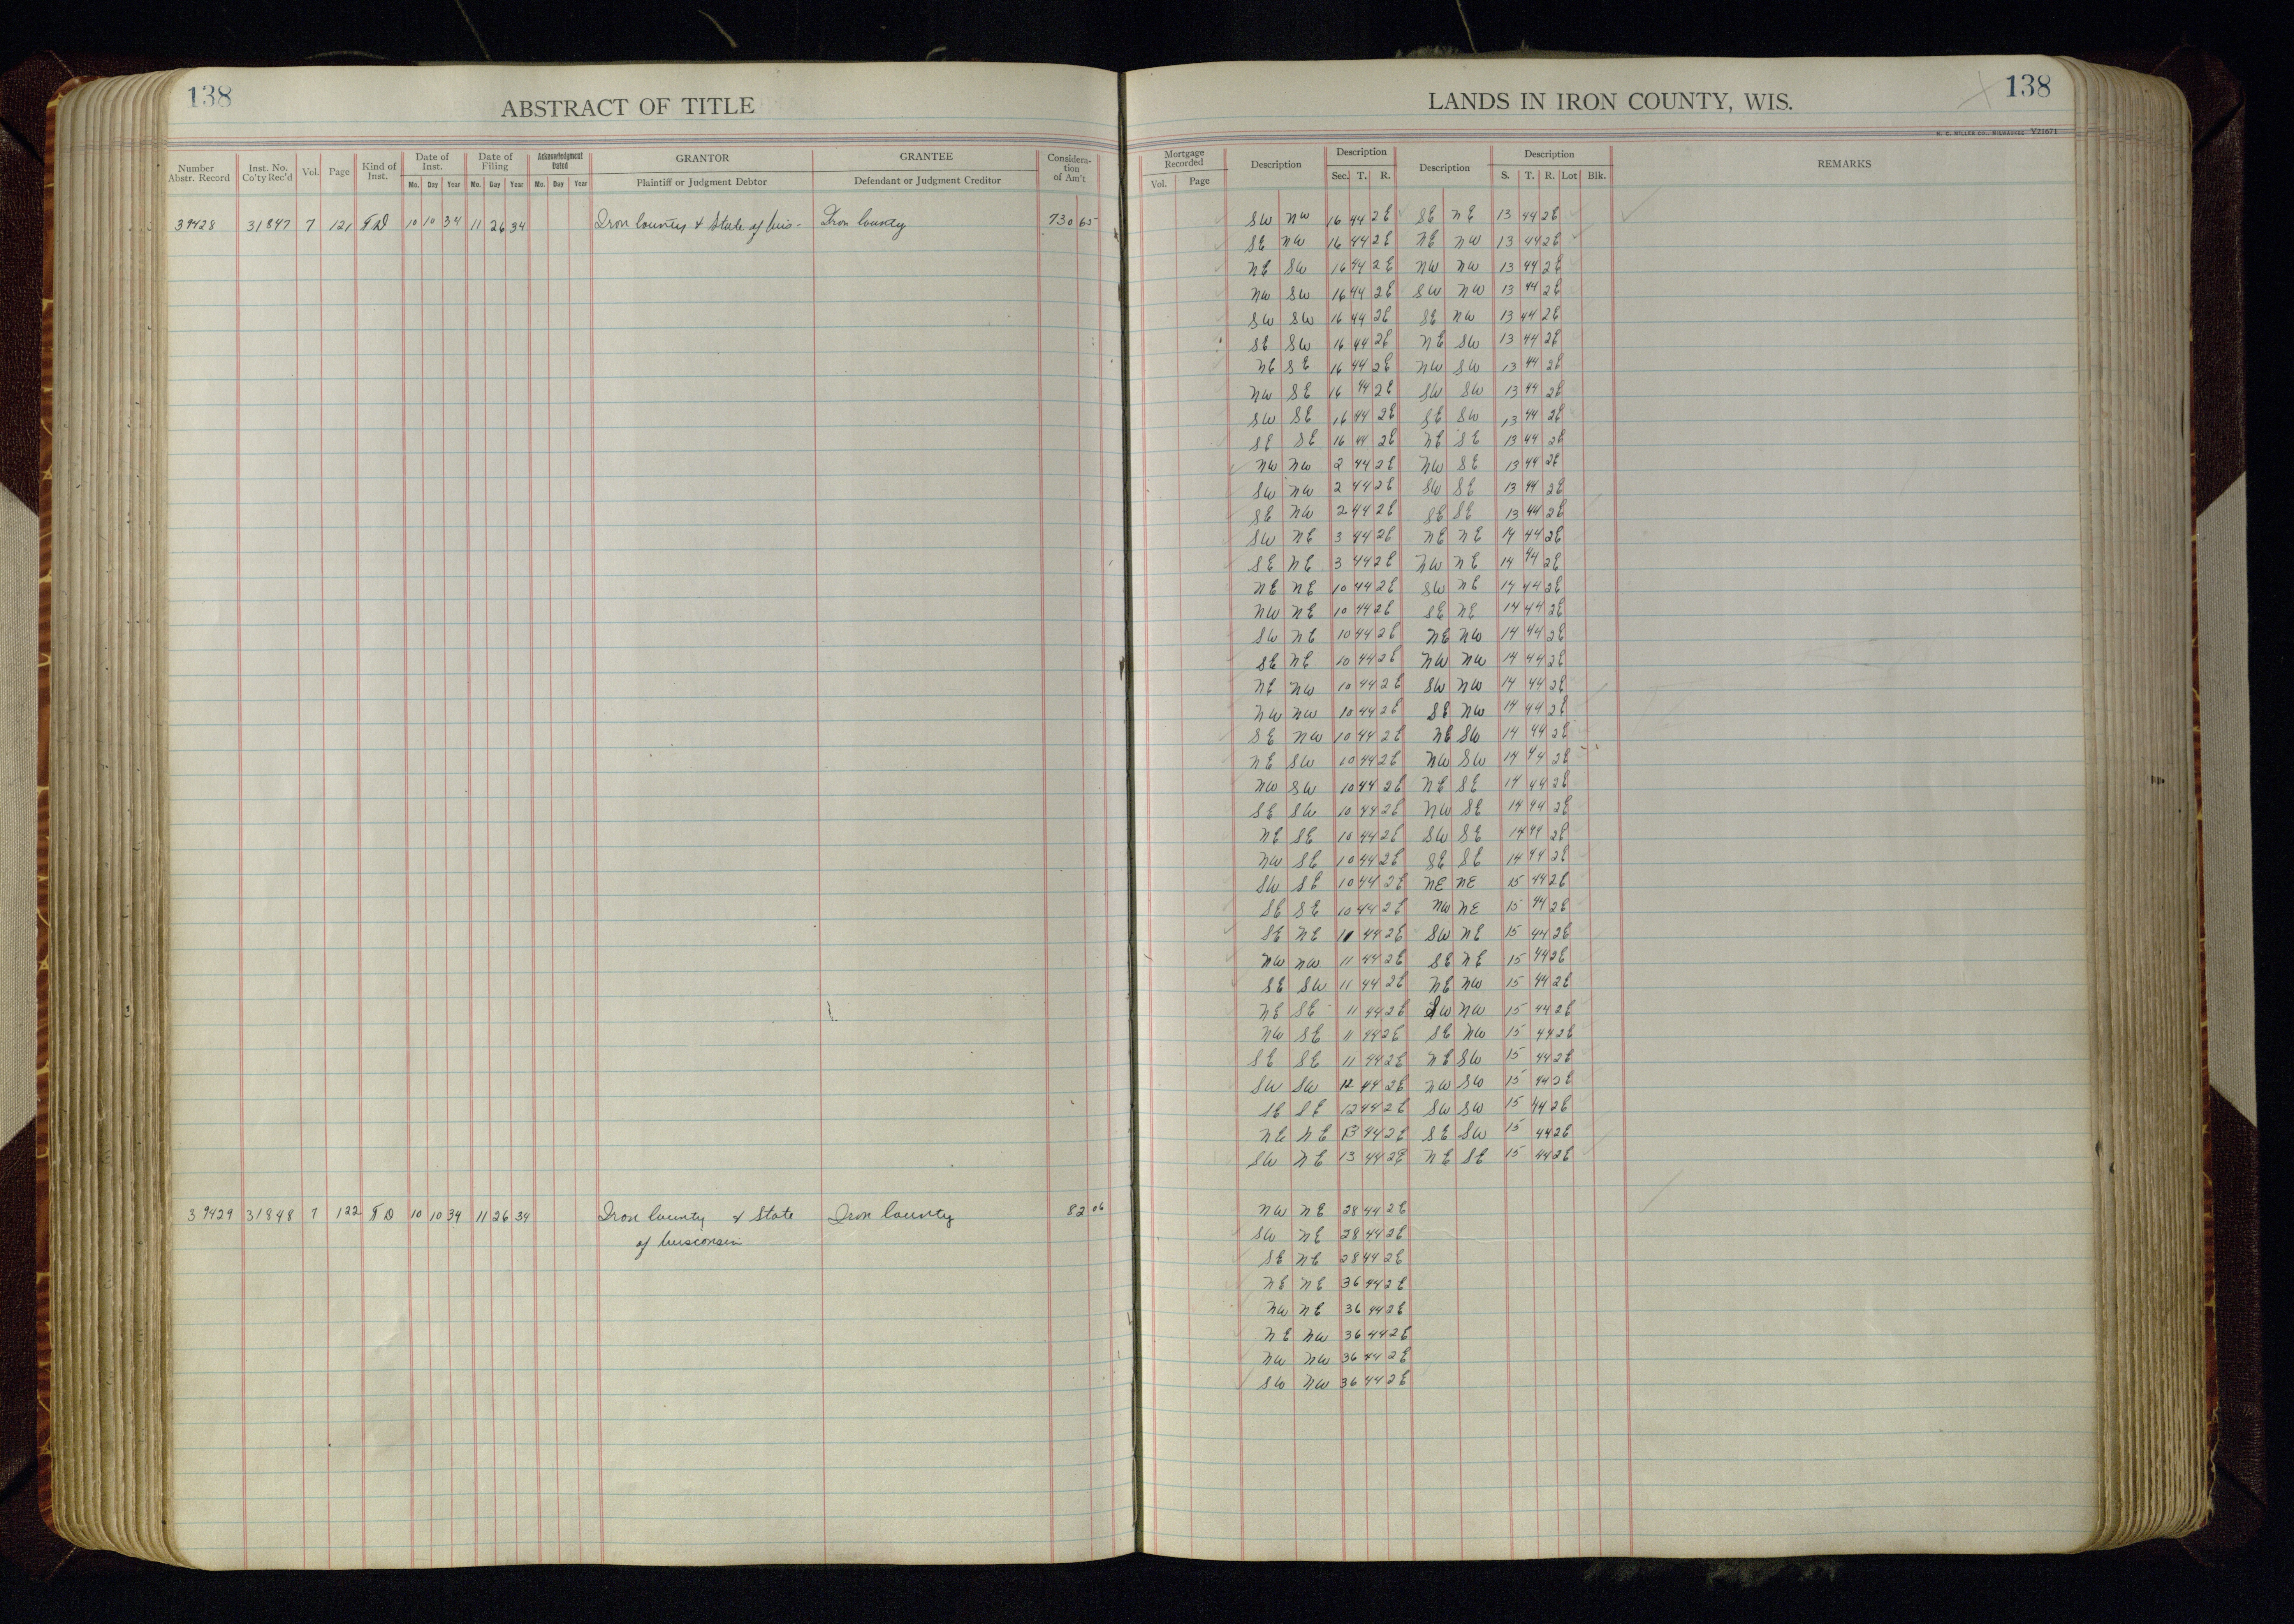 138
ABSTRACT OF TITLE
LANDS IN IRON COUNTY, WIS.
138
H. C. MILLER CO., MILWAUKEE V21671
Number Abstr. Record | Inst. No. Co'ty Rec'd | Vol. | Page | Kind of Inst. | Date of Inst. Mo. Day Year | Date of Filing Mo. Day Year | Acknowledgment Dated Mo. Day Year | GRANTOR Plaintiff or Judgment Debtor | GRANTEE Defendant or Judgment Creditor | Considera-tion of Am't
Mortgage Recorded Vol. Page | Description | Description Sec. T. R. | Description | Description S. T. R. Lot Blk. | REMARKS
39428 31847 7 121 T D 10 10 34 11 26 34 Iron County & State of Wis- Iron County 730 65
SW NW 16 44 2E SE NE 13 44 2E
SE NW 16 44 2E NE NW 13 44 2E
NE SW 16 44 2E NW NW 13 44 2E
NW SW 16 44 2E SW NW 13 44 2E
SW SW 16 44 2E SE NW 13 44 2E
SE SW 16 44 2E NE SW 13 44 2E
NE SE 16 44 2E NW SW 13 44 2E
NW SE 16 44 2E SW SW 13 44 2E
SW SE 16 44 2E SE SW 13 44 2E
SE SE 16 44 2E NE SE 13 44 2E
NW NW 2 44 2E NW SE 13 44 2E
SW NW 2 44 2E SW SE 13 44 2E
SE NW 2 44 2E SE SE 13 44 2E
SW NE 3 44 2E NE NE 14 44 2E
SE NE 3 44 2E NW NE 14 44 2E
NE NE 10 44 2E SW NE 14 44 2E
NW NE 10 44 2E SE NE 14 44 2E
SW NE 10 44 2E NE NW 14 44 2E
SE NE 10 44 2E NW NW 14 44 2E
NE NW 10 44 2E SW NW 14 44 2E
NW NW 10 44 2E SE NW 14 44 2E
SE NW 10 44 2E NE SW 14 44 2E
NE SW 10 44 2E NW SW 14 44 2E
NW SW 10 44 2E NE SE 14 44 2E
SE SW 10 44 2E NW SE 14 44 2E
NE SE 10 44 2E SW SE 14 44 2E
NW SE 10 44 2E SE SE 14 44 2E
SW SE 10 44 2E NE NE 15 44 2E
SE SE 10 44 2E NW NE 15 44 2E
SE NE 11 44 2E SW NE 15 44 2E
NW NW 11 44 2E SE NE 15 44 2E
SE SW 11 44 2E NE NW 15 44 2E
NE SE 11 44 2E SW NW 15 44 2E
NW SE 11 44 2E SE NW 15 44 2E
SE SE 11 44 2E NE SW 15 44 2E
SW SW 12 44 2E NW SW 15 44 2E
SE SE 12 44 2E SW SW 15 44 2E
NE NE 13 44 2E SE SW 15 44 2E
SW NE 13 44 2E NE SE 15 44 2E
39429 31848 7 122 T D 10 10 34 11 26 34 Iron County & State Iron County 82 06
of Wisconsin
NW NE 28 44 2E
SW NE 28 44 2E
SE NE 28 44 2E
NE NE 36 44 2E
NW NE 36 44 2E
NE NW 36 44 2E
NW NW 36 44 2E
SW NW 36 44 2E